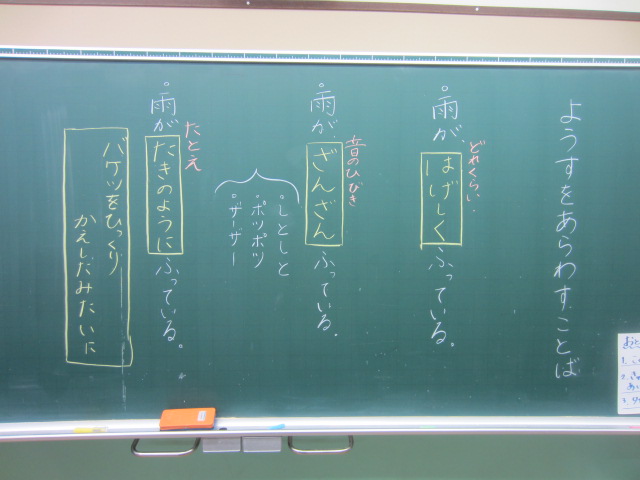 ようすをあらわすことば
どれくらい
。雨が、はげしくふっている。
音のひびき
。雨が、ざんざんふっている。
。しとしと
。ポツポツ
。ザーザー
たとえ
。雨が、たきのようにふっている。
バケツをひっくり
かえしたみたいに